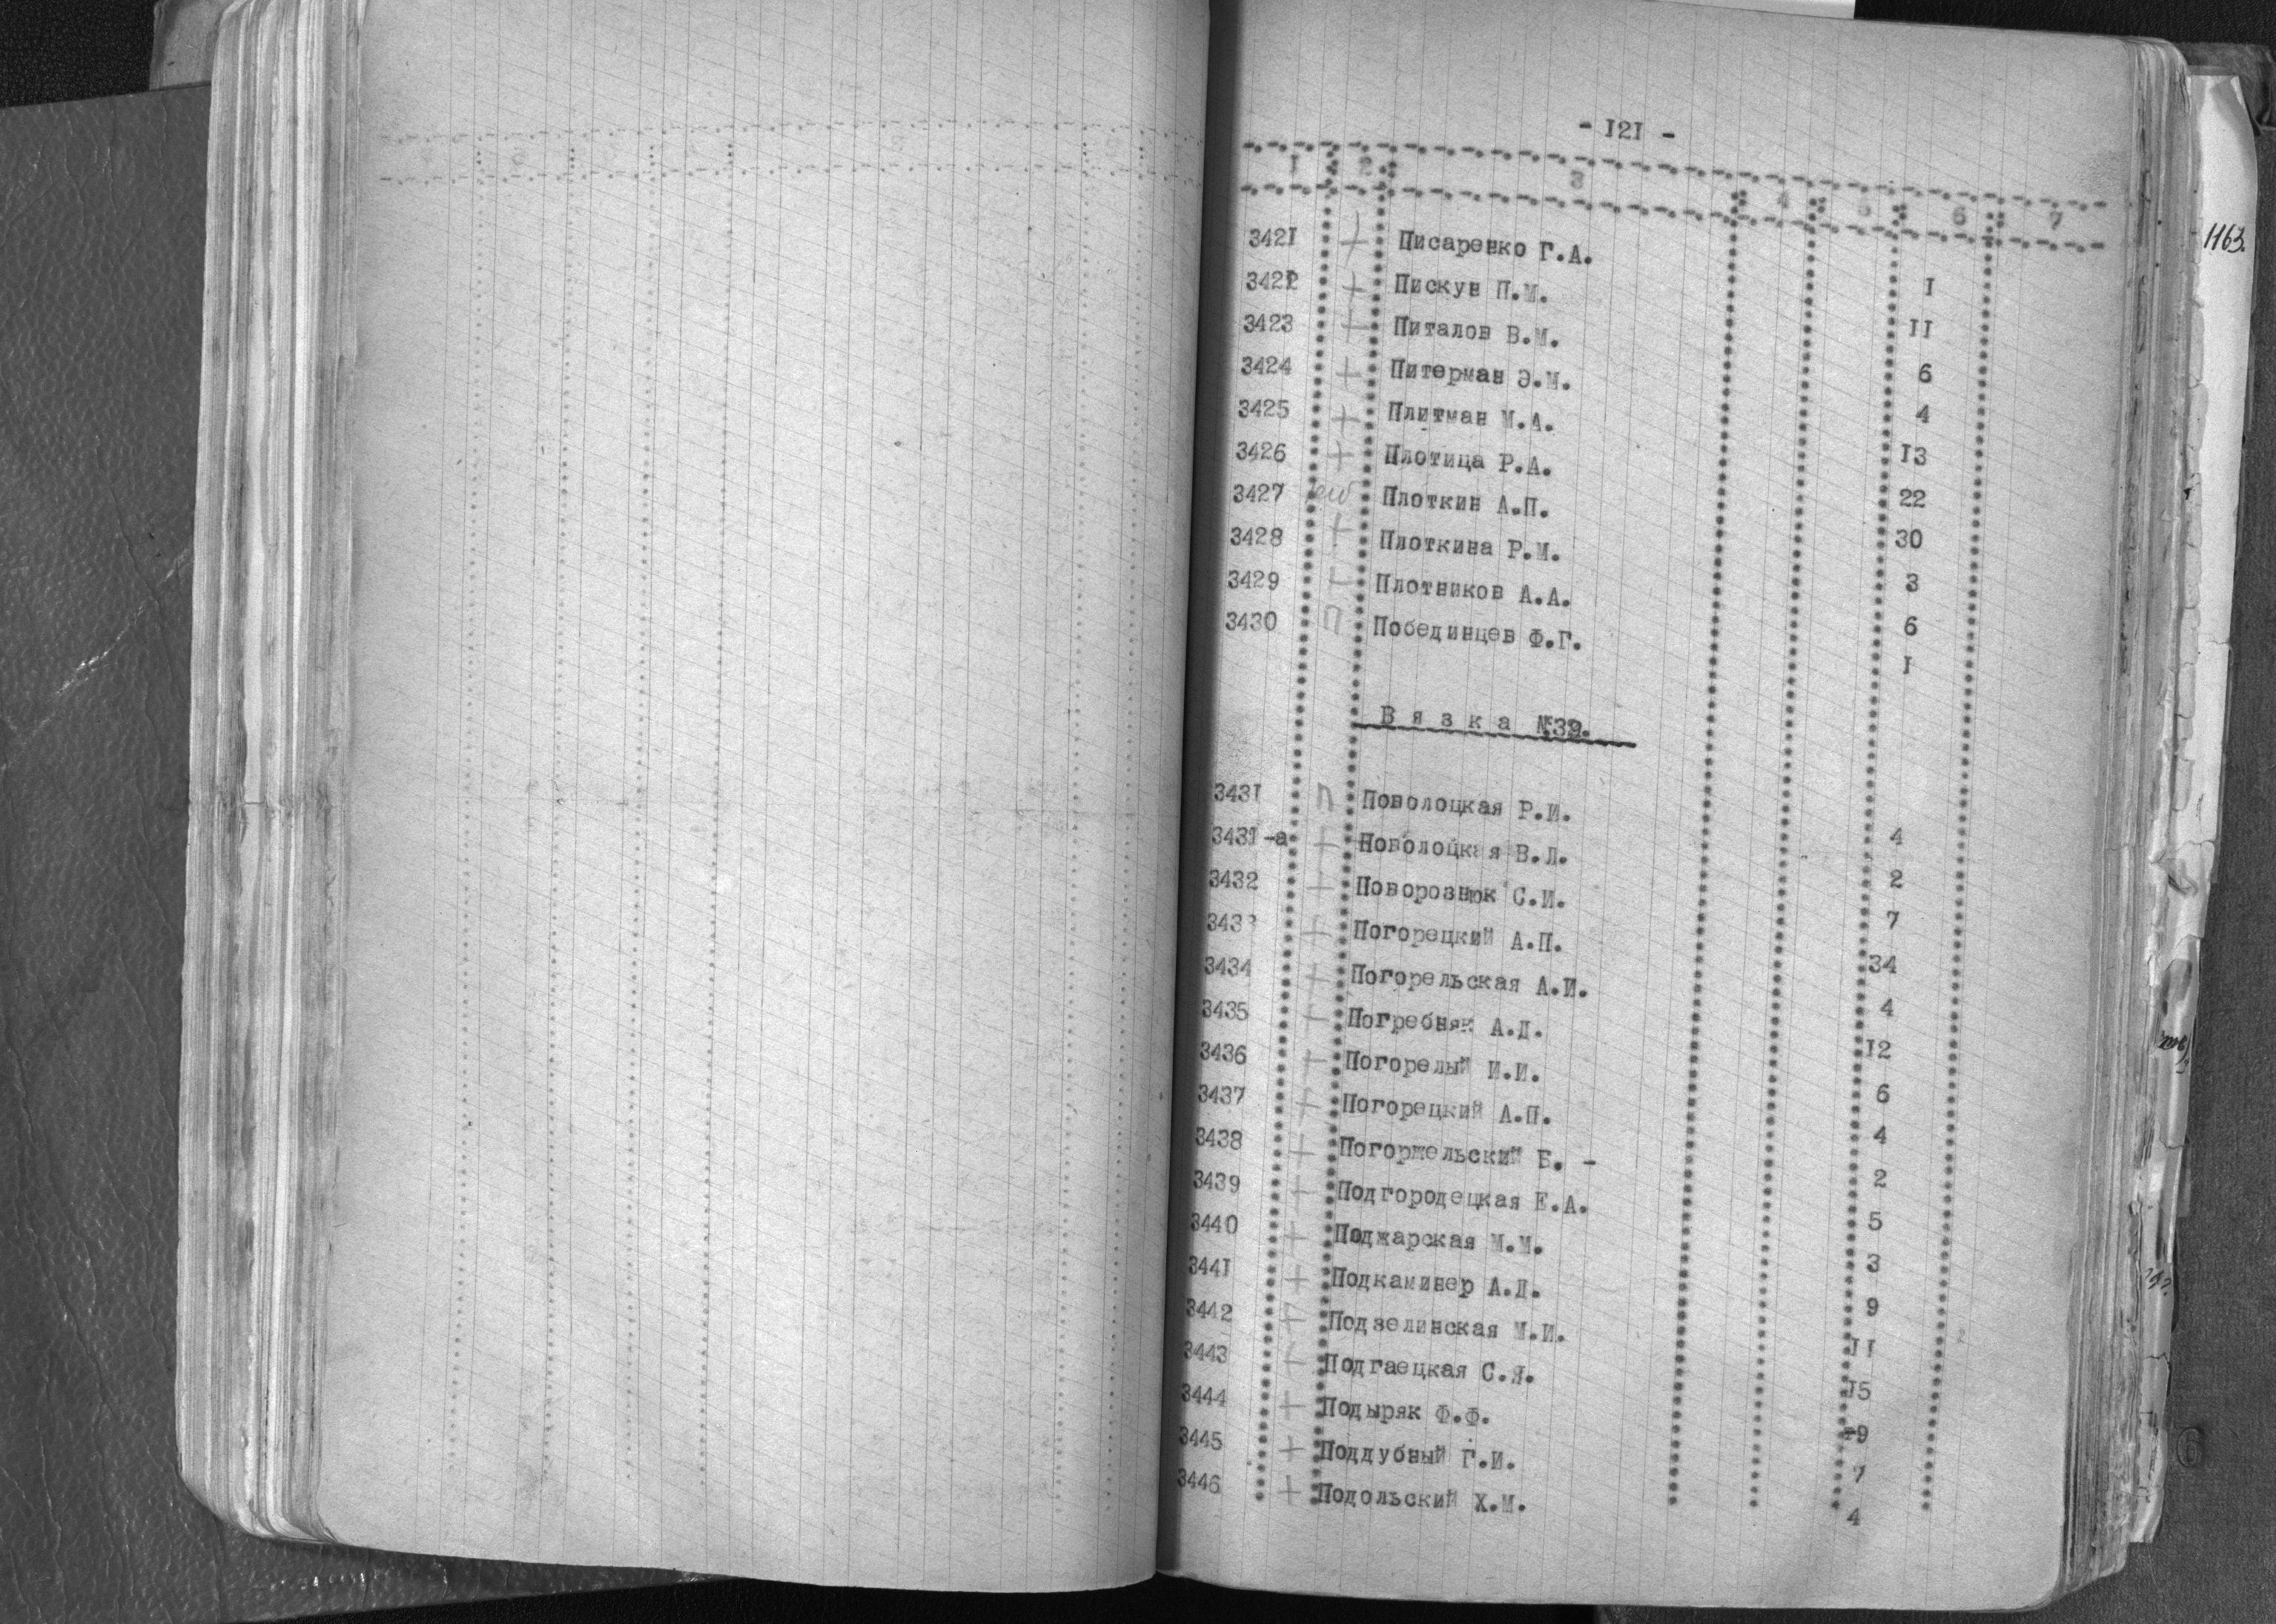 - I2I -
I 2 3 4 5 6 7
342I + Писаренко Г.А. I
3422 + Пискун П.М. II
3423 + Питалов В.М. 6
3424 + Питерман Э.М. 4
3425 + Плитман М.А. I3
3426 + Плотица Р.А. 22
3427 Плоткин А.П. 30
3428 + Плоткина Р.М. 3
3429 + Плотников А.А. 6
3430 П Побединцев Ф.Г. I
В я з к а №39.
343I П Поволоцкая Р.И. 4
343I-а + Поволоцкая В.Л. 2
3432 + Поворознюк С.И. 7
3433 + Погорецкий А.П. 34
3434 + Погорельская А.И. 4
3435 + Погребняк А.Д. I2
3436 + Погорелый И.И. 6
3437 + Погорецкий А.П. 4
3438 + Погоржельский Б. - 2
3439 + Подгородецкая Е.А. 5
3440 + Поджарская М.М. 3
344I + Подкаминер А.Д. 9
3442 + Подзелинская М.И. II
3443 + Подгаецкая С.Я. I5
3444 + Подыряк Ф.Ф. I9
3445 + Поддубный Г.И. 7
3446 + Подольский Х.М. 4
1163.